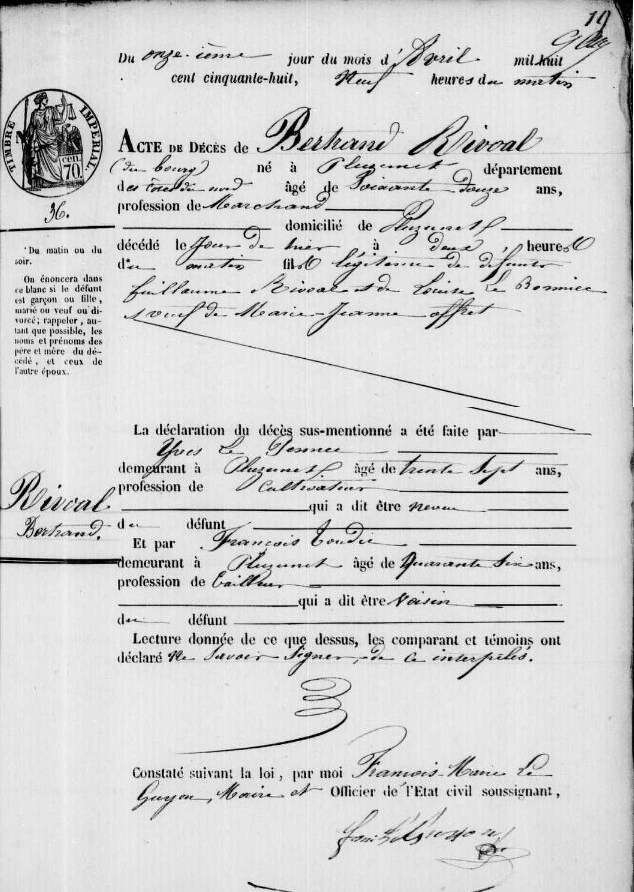 19
Du onzième jour du mois d'Avril mil huit
cent cinquante-huit, Neuf heures du matin
TIMBRE IMPERIAL
cen. 70
36.
ACTE DE DÉCÈS de Bertrand Rivoal
(du bourg) né à Pluzunet département
des Côtes du nord âgé de Soixante douze ans,
profession de Marchand
domicilié de Pluzunet
décédé le Jour de hier à deux heures
du matin fils légitime de défunts
Guillaume Rivoal et de Louise Le Bonniec
veuf de Marie-Jeanne offret
¹ Du matin ou du
soir.
On énoncera dans
ce blanc si le défunt
est garçon ou fille,
marié ou veuf ou di-
vorcé; rappeler, au-
tant que possible, les
noms et prénoms des
père et mère du dé-
cédé, et ceux de
l'autre époux.
La déclaration du décès sus-mentionné a été faite par
Yves Le
demeurant à Pluzunet âgé de trente Sept ans,
profession de Cultivateur
qui a dit être neveu
du défunt
Rivoal
Bertrand.
Et par François
demeurant à Pluzunet âgé de Quarante Six ans,
profession de tailleur
qui a dit être Voisin
du défunt
Lecture donnée de ce que dessus, les comparant et témoins ont
déclaré Ne Savoir Signer, de ce interpelés.
Constaté suivant la loi, par moi François-Marie Le
Guyon, Maire et Officier de l'Etat civil soussigné,